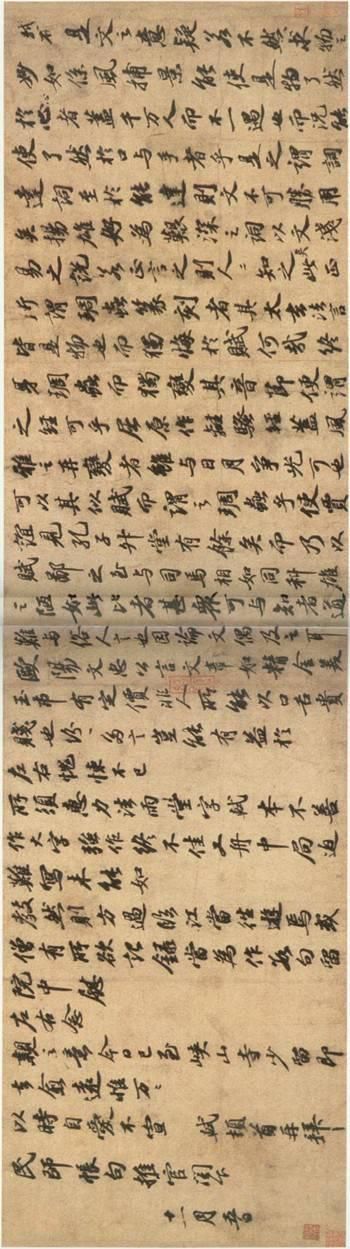 是文之意疑若不然求物之
妙如係風捕景能使是物了然
於心者蓋千万人而不一遇也而況能
使了然於口与手者乎是之謂詞
達詞至於能達則文不可勝用
矣揚雄好為艱深之詞以文淺
易之說若正言之則人人知之此正
所謂琱蟲篆刻者其太玄法言
皆是物也而獨悔於賦何哉終
身琱蟲而獨變其音節便謂
之經可乎屈原作離騷經蓋風
雅之再變者雖与日月爭光可也
可以其似賦而謂之琱蟲乎使賈
誼見孔子升堂有餘矣而乃以
賦鄙之至与司馬相如同科雄
之陋如此比者甚眾可与知者道
難与俗人言也因論文偶及之耳
歐陽文忠公言文章如精金美
玉市有定價非人所能以口舌貴
賤也紛紛多言豈能有益於
左右愧悚不已
所須惠力法雨堂字軾本不善
作大字強作終不佳又舟中局迫
難寫未能如
教然則方過臨江當往遊焉或
僧有所欲記錄當為作數句留
院中慰
左右念
親之意今日已至峽山寺少留即
去愈遠惟万万
以時自愛不宣 軾頓首再拜
民師帳句推官閣下
十一月五日